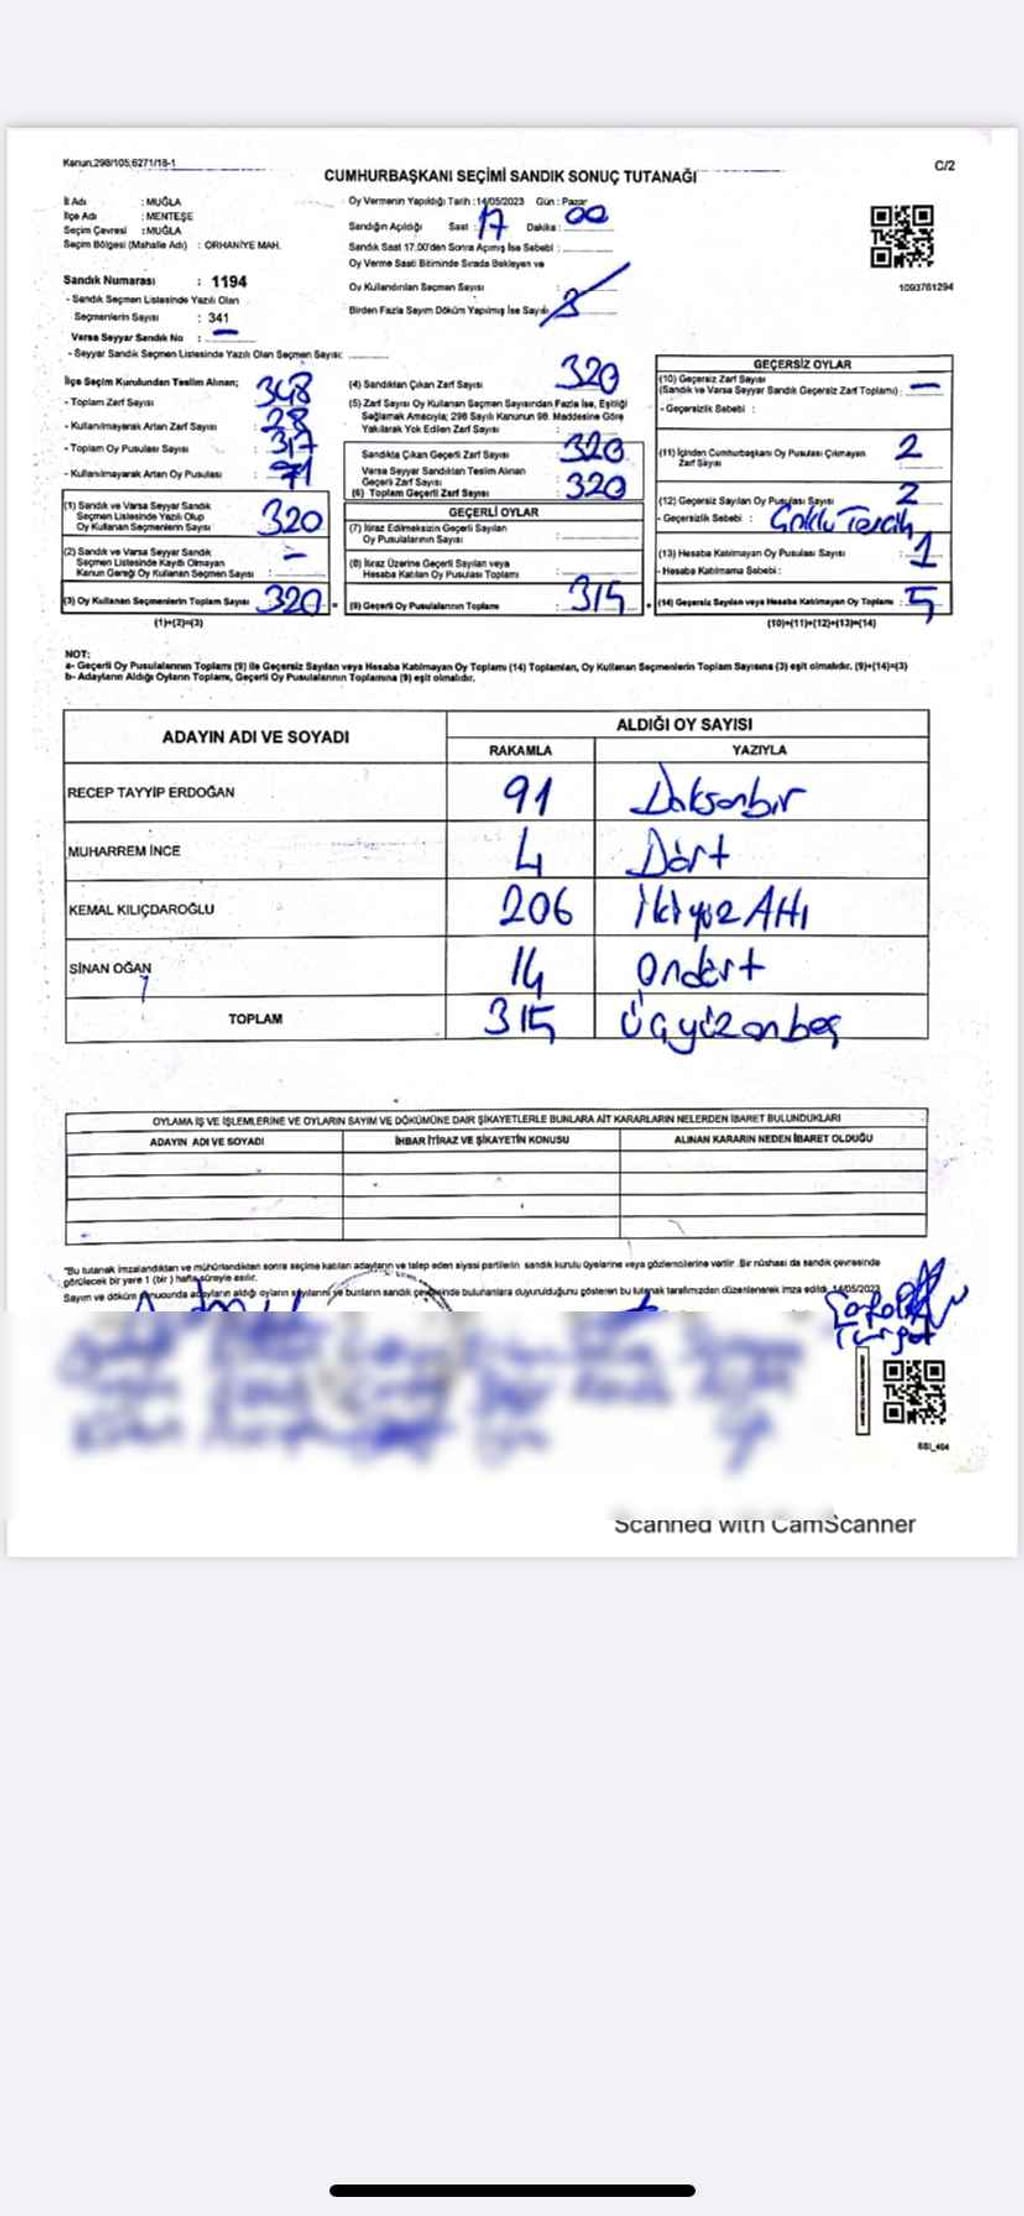 Kanun.298/105;6271/18-1
C/2
CUMHURBAŞKANI SEÇİMİ SANDIK SONUÇ TUTANAĞI
İl Adı : MUĞLA
İlçe Adı : MENTEŞE
Seçim Çevresi : MUĞLA
Seçim Bölgesi (Mahalle Adı) : ORHANİYE MAH.
Sandık Numarası : 1194
- Sandık Seçmen Listesinde Yazılı Olan
Seçmenlerin Sayısı : 341
Varsa Seyyar Sandık No : —
- Seyyar Sandık Seçmen Listesinde Yazılı Olan Seçmen Sayısı:
Oy Vermenin Yapıldığı Tarih : 14/05/2023 Gün : Pazar
Sandığın Açıldığı Saat : 17 Dakika : 00
Sandık Saat 17.00'den Sonra Açımış İse Sebebi :
Oy Verme Saati Bitiminde Sırada Bekleyen ve
Oy Kullandırılan Seçmen Sayısı :
Birden Fazla Sayım Döküm Yapılmış İse Sayısı
1093761294
İlçe Seçim Kurulundan Teslim Alınan;
- Toplam Zarf Sayısı : 348
- Kullanılmayarak Artan Zarf Sayısı : 28
- Toplam Oy Pusulası Sayısı :
- Kullanılmayarak Artan Oy Pusulası : 71
(1) Sandık ve Varsa Seyyar Sandık
Seçmen Listesinde Yazılı Olup
Oy Kullanan Seçmenlerin Sayısı 320
(2) Sandık ve Varsa Seyyar Sandık
Seçmen Listesinde Kayıtlı Olmayan
Kanun Gereği Oy Kullanan Seçmen Sayısı : —
(3) Oy Kullanan Seçmenlerin Toplam Sayısı : 320
(1)+(2)=(3)
(4) Sandıktan Çıkan Zarf Sayısı : 320
(5) Zarf Sayısı Oy Kullanan Seçmen Sayısından Fazla İse, Eşitliği
Sağlamak Amacıyla; 298 Sayılı Kanunun 98. Maddesine Göre
Yakılarak Yok Edilen Zarf Sayısı :
Sandıkta Çıkan Geçerli Zarf Sayısı : 320
Varsa Seyyar Sandıktan Teslim Alınan
Geçerli Zarf Sayısı :
(6) Toplam Geçerli Zarf Sayısı : 320
GEÇERLİ OYLAR
(7) İtiraz Edilmeksizin Geçerli Sayılan
Oy Pusulalarının Sayısı :
(8) İtiraz Üzerine Geçerli Sayılan veya
Hesaba Katılan Oy Pusulası Toplamı :
(9) Geçerli Oy Pusulalarının Toplamı : 315
GEÇERSİZ OYLAR
(10) Geçersiz Zarf Sayısı
(Sandık ve Varsa Seyyar Sandık Geçersiz Zarf Toplamı) : —
- Geçersizlik Sebebi :
(11) İçinden Cumhurbaşkanı Oy Pusulası Çıkmayan
Zarf Sayısı : 2
(12) Geçersiz Sayılan Oy Pusulası Sayısı : 2
- Geçersizlik Sebebi : Çoklu Tercih
(13) Hesaba Katılmayan Oy Pusulası Sayısı : 1
- Hesaba Katılmama Sebebi :
(14) Geçersiz Sayılan veya Hesaba Katılmayan Oy Toplamı : 5
(10)+(11)+(12)+(13)=(14)
NOT:
a- Geçerli Oy Pusulalarının Toplamı (9) ile Geçersiz Sayılan veya Hesaba Katılmayan Oy Toplamı (14) Toplamları, Oy Kullanan Seçmenlerin Toplam Sayısına (3) eşit olmalıdır. (9)+(14)=(3)
b- Adayların Aldığı Oyların Toplamı, Geçerli Oy Pusulalarının Toplamına (9) eşit olmalıdır.
ADAYIN ADI VE SOYADI
ALDIĞI OY SAYISI
RAKAMLA YAZIYLA
RECEP TAYYİP ERDOĞAN 91 Doksanbir
MUHARREM İNCE 4 Dört
KEMAL KILIÇDAROĞLU 206 İkiyüz Altı
SİNAN OĞAN 14 Ondört
TOPLAM 315 Üçyüzonbeş
OYLAMA İŞ VE İŞLEMLERİNE VE OYLARIN SAYIM VE DÖKÜMÜNE DAİR ŞİKAYETLERLE BUNLARA AİT KARARLARIN NELERDEN İBARET BULUNDUKLARI
ADAYIN ADI VE SOYADI İHBAR İTİRAZ VE ŞİKAYETİN KONUSU ALINAN KARARIN NEDEN İBARET OLDUĞU
"Bu tutanak imzalandıktan ve mühürlandiktan sonra seçime katılan adayların ve talep eden siyasi partilerin sandık kurulu üyelerine veya gözlemcilerine verilir. Bir nüshası da sandık çevresinde
görülecek bir yere 1 (bir) hafta süreyle asılır.
Sayım ve döküm sonucunda adayların aldığı oyların sayılarını ve bunların sandık çevresinde bulunanlara duyurulduğunu gösteren bu tutanak tarafımızdan düzenlenerek imza edildi. 14/05/2023
Turgut
Scanned with CamScanner